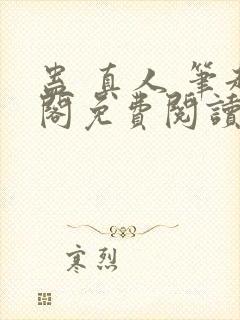 蠱真人 筆趣
閣免費閱讀
寒烈